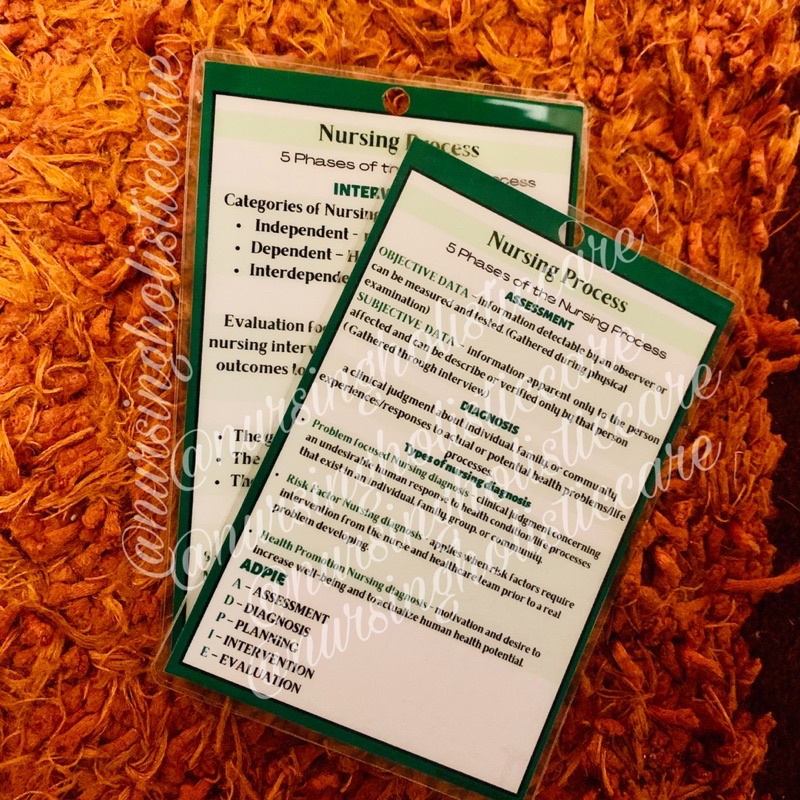 Nursing Process
5 Phases of the
INTERV
Categories of Nursing
• Independent -
• Dependent - H
• Interdepende
Evaluation fo
nursing interv
outcomes to
• The g
• The
• The
Nursing Process
5 Phases of the Nursing Process
ASSESSMENT
OBJECTIVE DATA - information detectable by an observer or
can be measured and tested. (Gathered during physical
examination)
SUBJECTIVE DATA - information apparent only to the person
affected and can be describe or verified only by that person
(Gathered through interview)
DIAGNOSIS
- a clinical judgment about individual, family, or community
experiences/responses to actual or potential health problems/life
processes.
Types of nursing diagnosis
• Problem focused Nursing diagnosis - clinical judgment concerning
an undesirable human response to health condition/life processes
that exist in an individual, family, group, or community.
• Risk factor Nursing diagnosis - applies when risk factors require
intervention from the nurse and healthcare team prior to a real
problem developing.
• Health Promotion Nursing diagnosis - motivation and desire to
increase well-being and to actualize human health potential.
ADPIE
A - ASSESSMENT
D - DIAGNOSIS
P - PLANNING
I - INTERVENTION
E - EVALUATION
@nursingholisticcare
@nursingholisticcare
@nursingholisticcare
@nursingholisticcare
@nursingholisticcare